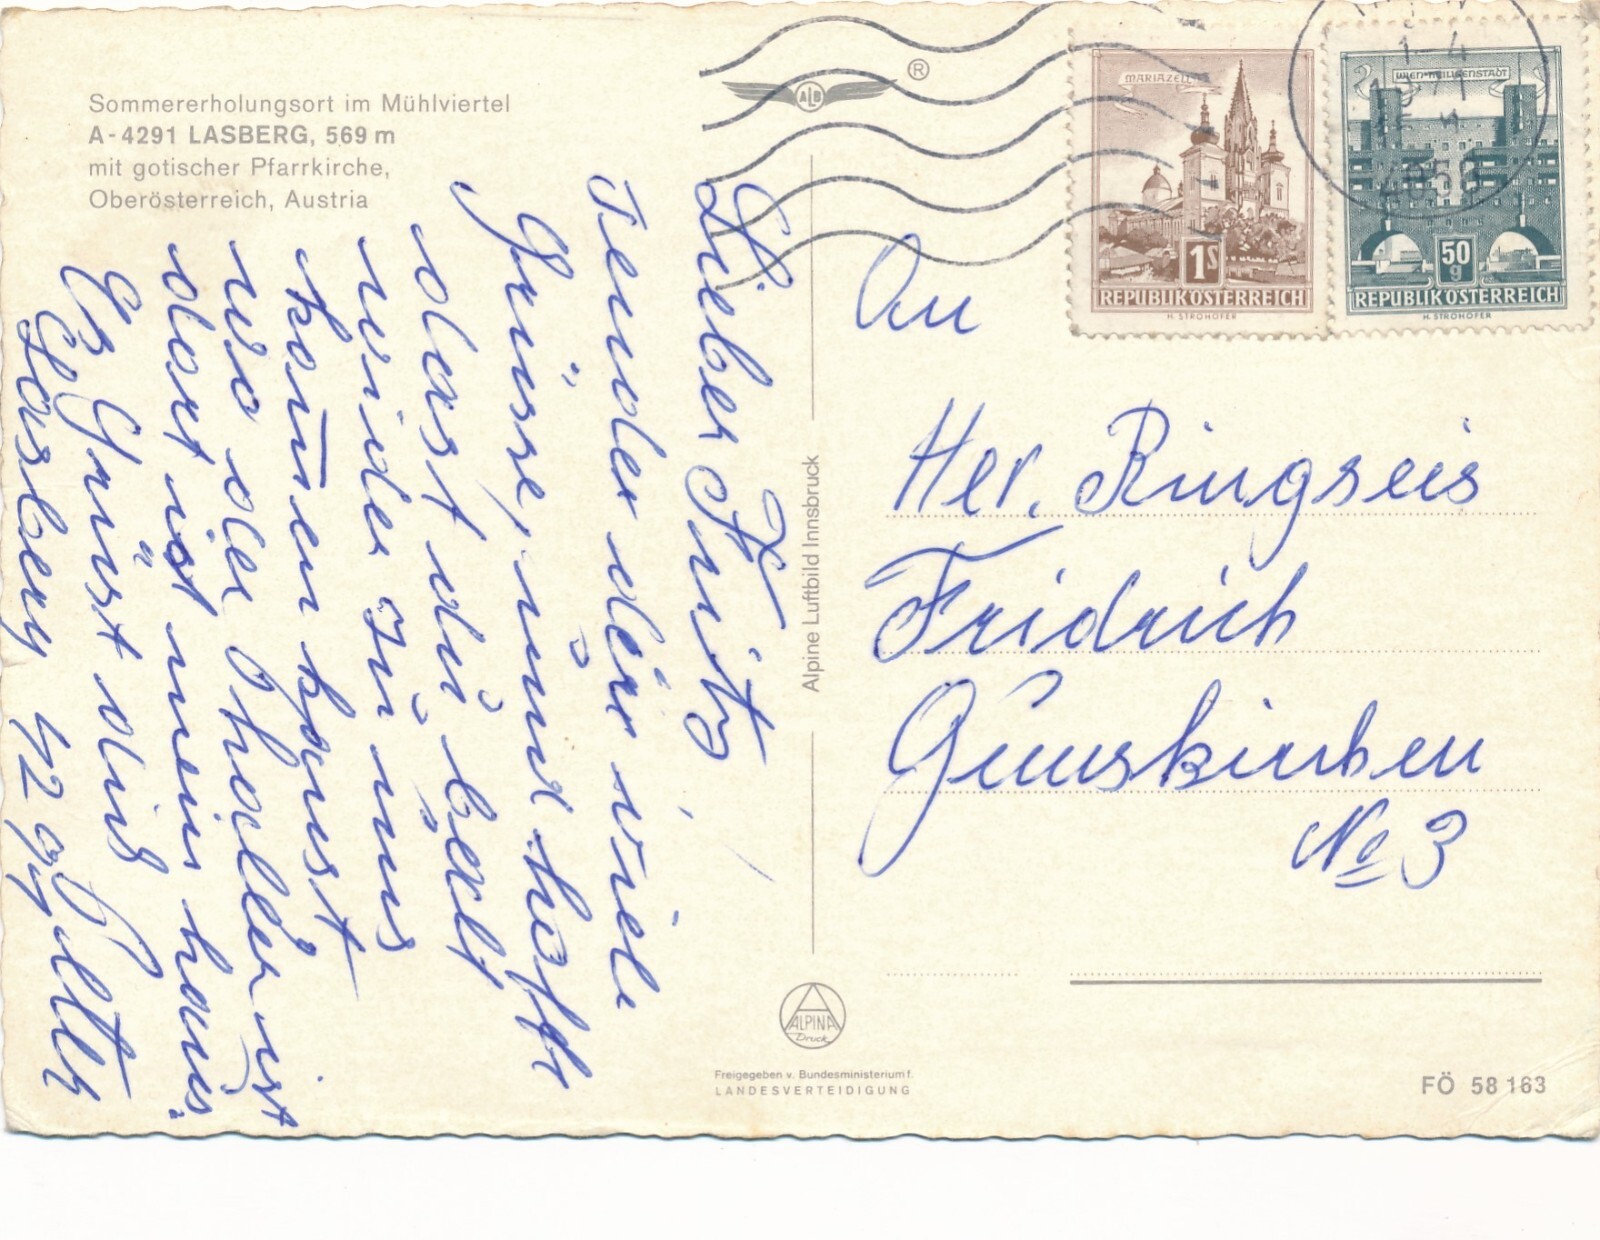 Sommererholungsort im Mühlviertel
A-4291 LASBERG, 569 m
mit gotischer Pfarrkirche,
Oberösterreich, Austria
ALB
®
MARIAZELL
1S
REPUBLIK ÖSTERREICH
H. STROHOFER
WIEN-HEILIGENSTADT
50
g
REPUBLIK ÖSTERREICH
H. STROHOFER
Lieber Fritz
sender dir viele
Grüsse, und hofft
dast du balt
wider zu uns
komen kanst
wo der Pholler ist
dort ist mein haus
Es Grüst dich
Lasberg 42
An
Her. Ringseis
Fridrich
Gunskirchen
No 3
Alpine Luftbild Innsbruck
ALPINA
Druck
Freigegeben v. Bundesministerium f.
LANDESVERTEIDIGUNG
FÖ 58 163